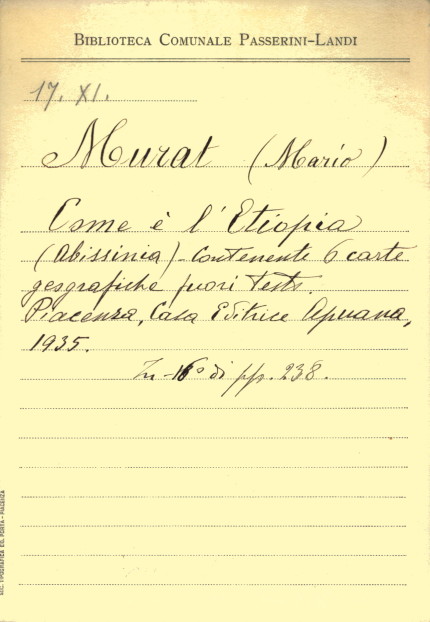 BIBLIOTECA COMUNALE PASSERINI-LANDI
17. XI.
Murat (Mario)
Come è l'Etiopia
(Abissinia) - Contenente 6 carte
geografiche fuori testo.
Piacenza, Casa Editrice Apuana,
1935.
In-16° di pp. 238.
SOC. TIPOGRAFICA ED. PORTA - PIACENZA